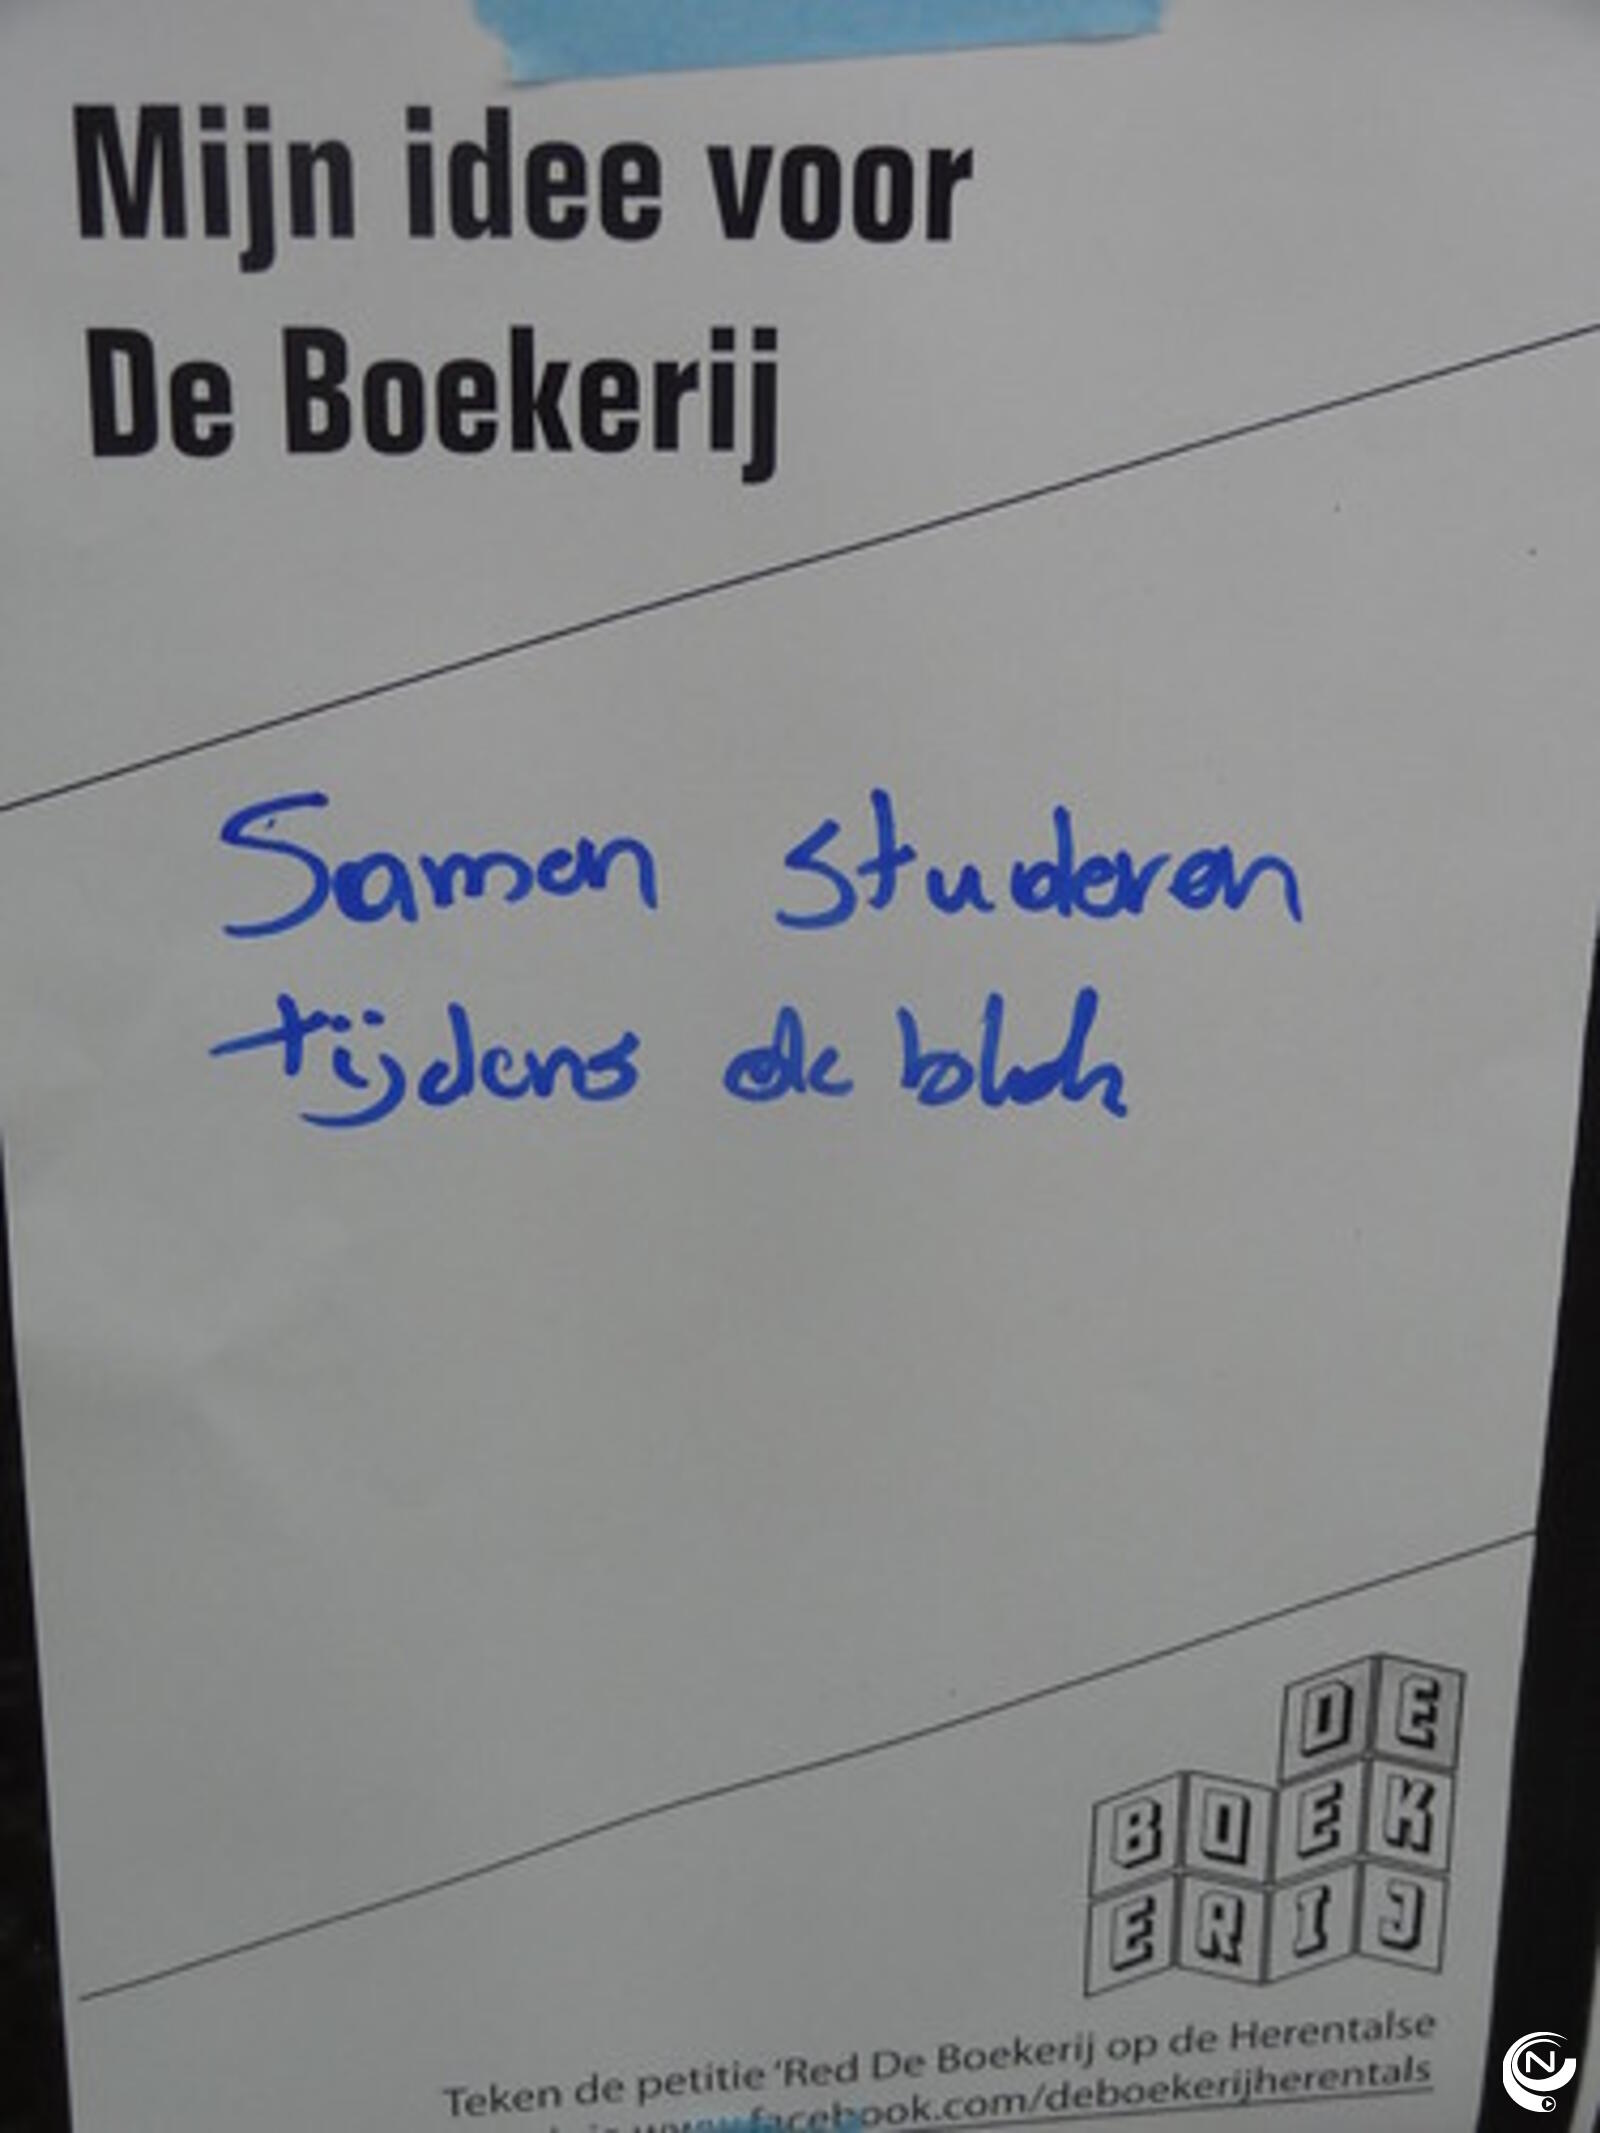 Mijn idee voor
De Boekerij
Samen studeren
tijdens de blok
DE
BOEK
ERIJ
Teken de petitie 'Red De Boekerij op de Herentalse
www.facebook.com/deboekerijherentals
N